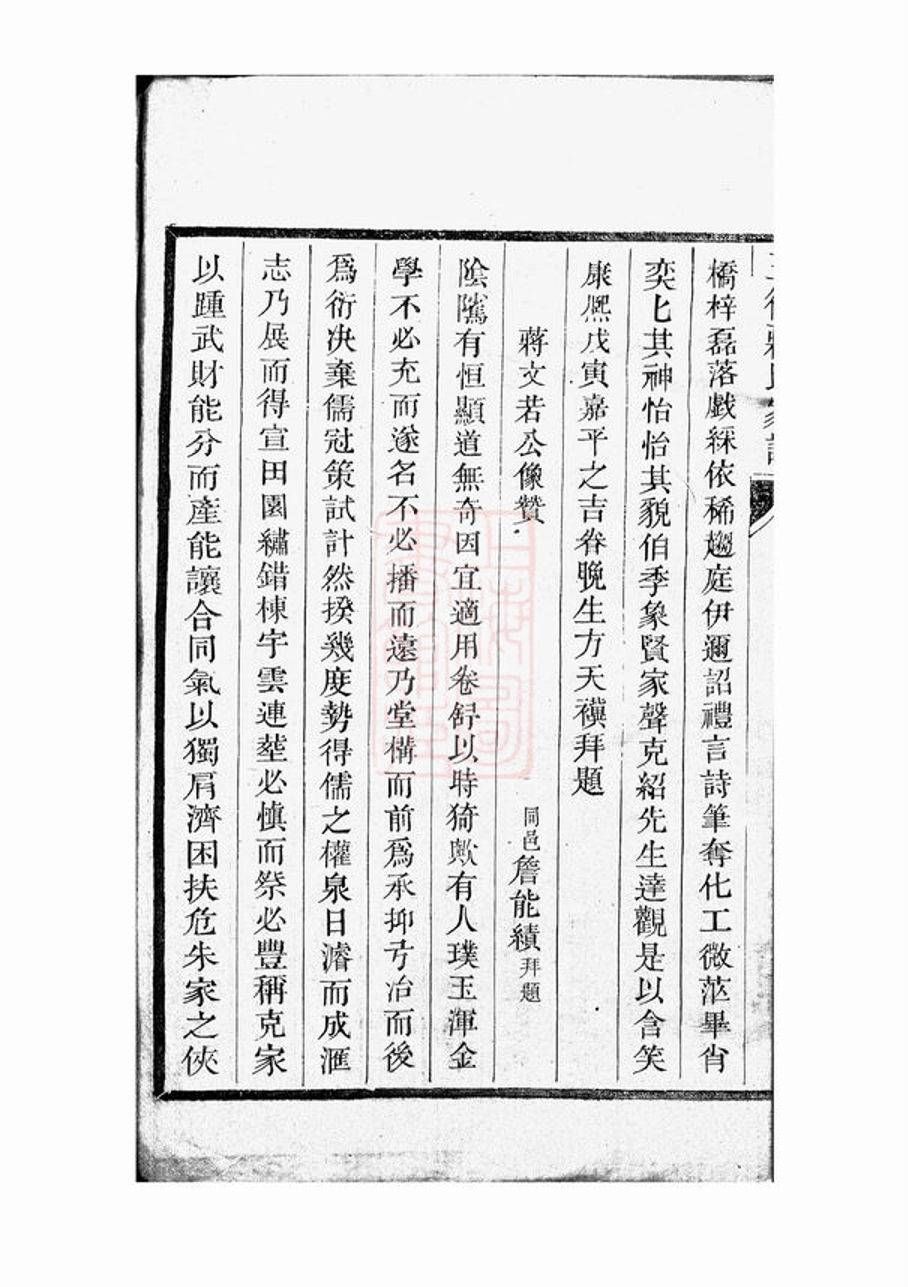 橋梓磊落戯綵依稀趨庭伊邇詔禮言詩筆奪化工微茫畢肖
奕匕其神怡怡其貌伯季象賢家聲克紹先生達觀是以含笑
康熈戊寅嘉平之吉眷晚生方天禛拜題
蔣文若公像贊 同邑詹能績拜題
陰隲有恒顯道無奇因宜適用卷舒以時猗歟有人璞玉渾金
學不必充而遂名不必播而遠乃堂構而前爲承抑弓冶而後
爲衍决棄儒冠策試計然揆幾度勢得儒之權泉日濬而成滙
志乃展而得宣田園繡錯棟宇雲連塟必愼而祭必豐稱克家
以踵武財能分而產能讓合同氣以獨肩濟困扶危朱家之俠